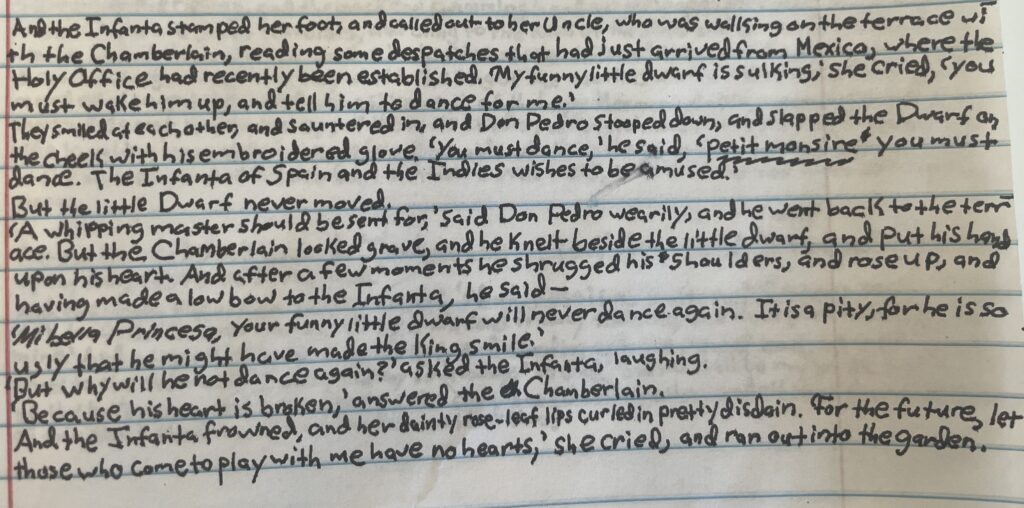 And the Infanta stamped her foot, and called out to her Uncle, who was walking on the terrace wi
th the Chamberlain, reading some despatches that had just arrived from Mexico, where the
Holy Office had recently been established. 'My funny little dwarf is sulking,' she cried, 'you
must wake him up, and tell him to dance for me.'
They smiled at each other, and sauntered in, and Don Pedro stooped down, and slapped the Dwarf on
the cheek with his embroidered glove. 'You must dance,' he said, 'petit monsire' you must
dance. The Infanta of Spain and the Indies wishes to be amused.'
But the little Dwarf never moved.
'A whipping master should be sent for,' said Don Pedro wearily, and he went back to the terr
ace. But the Chamberlain looked grave, and he knelt beside the little dwarf, and put his hand
upon his heart. And after a few moments he shrugged his shoulders, and rose up, and
having made a low bow to the Infanta, he said—
'Mi bella Princesa, your funny little dwarf will never dance again. It is a pity, for he is so
ugly that he might have made the King smile.'
'But why will he not dance again?' asked the Infanta, laughing.
'Because his heart is broken,' answered the Chamberlain.
And the Infanta frowned, and her dainty rose-leaf lips curled in pretty disdain. 'For the future, let
those who come to play with me have no hearts,' she cried, and ran out into the garden.